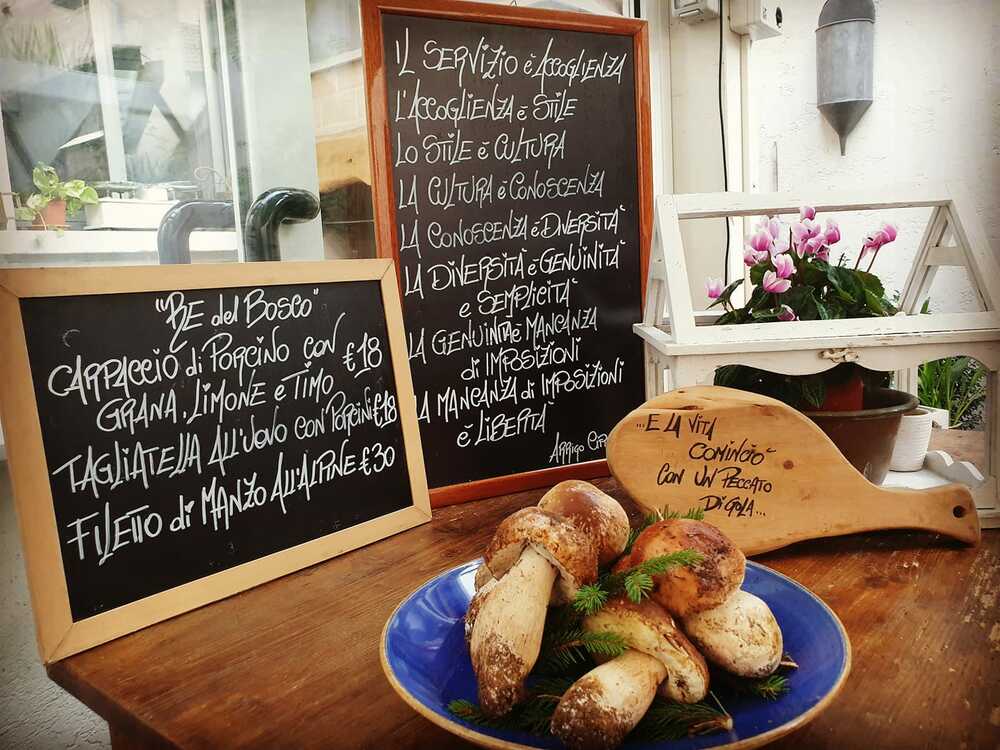 "RE del BOSCO"
CARPACCIO di PORCINO con
GRANA, LIMONE e TIMO €18
TAGLIATELLA ALL'UOVO con PORCINI €18
FILETTO di MANZO ALL'ALPINE €30
IL SERVIZIO è ACCOGLIENZA
L'ACCOGLIENZA è STILE
LO STILE è CULTURA
LA CULTURA è CONOSCENZA
LA CONOSCENZA è DIVERSITA'
LA DIVERSITA' è GENUINITA'
e SEMPLICITA'
LA GENUINITA' è MANCANZA
di IMPOSIZIONI
LA MANCANZA di IMPOSIZIONI
è LIBERTA'
ARRIGO
...E LA VITA
COMINCIO'
CON UN PECCATO
DI GOLA...